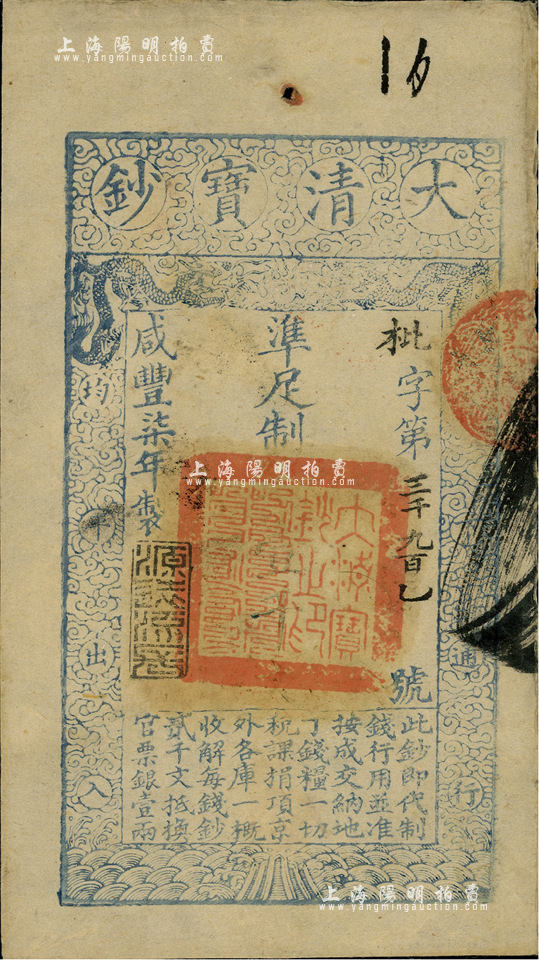 上海陽明拍賣
www.yangmingauction.com
大清寶鈔
枇字第三千九百乙號
準足制
咸豐柒年製
上海陽明拍賣
www.yangmingauction.com
大清寶鈔之印
均平出入
通行
此鈔即代制
錢行用並准
按成交納地
丁錢糧一切
稅課捐項京
外各庫一概
收解每錢鈔
貳千文抵換
官票銀壹兩
上海陽明拍賣
www.yangmingauction.com